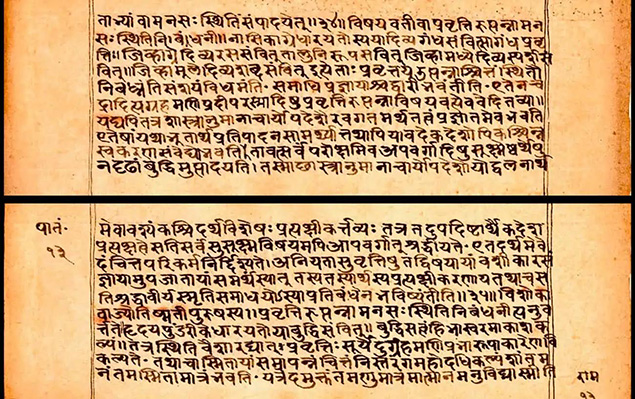 ताभ्यां वा मनसः स्थितिं संपादयेत्॥३४॥ विषयवती वा प्रवृत्तिरुत्पन्ना मन
सः स्थितिनिबंधनी॥ नासिकाग्रे धारयतोस्य या दिव्यगंधसंवित्सा गंधप्रवृ
त्तिः॥ जिव्हाग्रे दिव्यरससंवित् तालुनि रूपसंवित् जिव्हामध्ये दिव्यस्पर्शसं
वित्॥ जिव्हामूले दिव्यशब्दसंवित् इत्येताः प्रवृत्तय उत्पन्नाश्चित्तं स्थितौ
निबध्नंति संशयं विधमंति- समाधिप्रज्ञायां च द्वारीभवंतीति- एतेन चं
द्रादित्यग्रहमणिप्रदीपरत्नादिषु प्रवृत्तिरुत्पन्ना विषयवत्येव वेदितव्या॥
यद्यपि तत्र शास्त्रानुमानाचार्योपदेशैरवगतमर्थतत्त्वं भवति
एतेषां यथाभूतार्थप्रतिपादनसामर्थ्यात् तथापि यावदेकदेशोपि कश्चिन्न
स्वकरणसंवेद्यो भवति। तावत्सर्वं परोक्षमिव अपवर्गादिषु सूक्ष्मेष्वर्थेषु
न दृढां बुद्धिमुत्पादयति। तस्माच्छास्त्रानुमानाचार्योपदेशोपोद्बलनार्थ
पातं॰
१३
मेवावश्यं कश्चिदर्थविशेषः प्रत्यक्षीकर्त्तव्यः तत्र तदुपदिष्टार्थैकदेश
प्रत्यक्षत्वे सति सर्वं सुसूक्ष्मविषयमपि आपवर्गात् श्रद्धीयते- एतदर्थमेवे
दं चित्तपरिकर्म निर्दिश्यते। अनियतासु वृत्तिषु तद्विषयायां वशीकारसं
ज्ञायामुपजातायां समर्थं स्यात् तस्य तस्यार्थस्य प्रत्यक्षीकरणाय तथा च स
ति श्रद्धावीर्यस्मृतिसमाधयोस्याप्रतिबंधेन भविष्यंतीति॥३५॥ विशोका
वा ज्योतिष्मती प्रवृत्तिरुत्पन्ना मनसः स्थितिनिबंधनीत्यनुव
र्त्तते हृदयपुंडरीके धारयतो या बुद्धिसंवित्॥ बुद्धिसत्त्वं हि भास्वरमाकाशक
ल्पं॥ तत्र स्थितिवैशारद्यात् प्रवृत्तिः सूर्येंदुग्रहमणिप्रभारूपाकारेण वि
कल्पते- तथास्मितायां समापन्नं चित्तं निस्तरंगमहोदधिकल्पं शांतम
नंतमस्मितामात्रं भवति- यत्रेदमुक्तं तमणुमात्रमात्मानमनुविद्यास्मीति
राम
१३